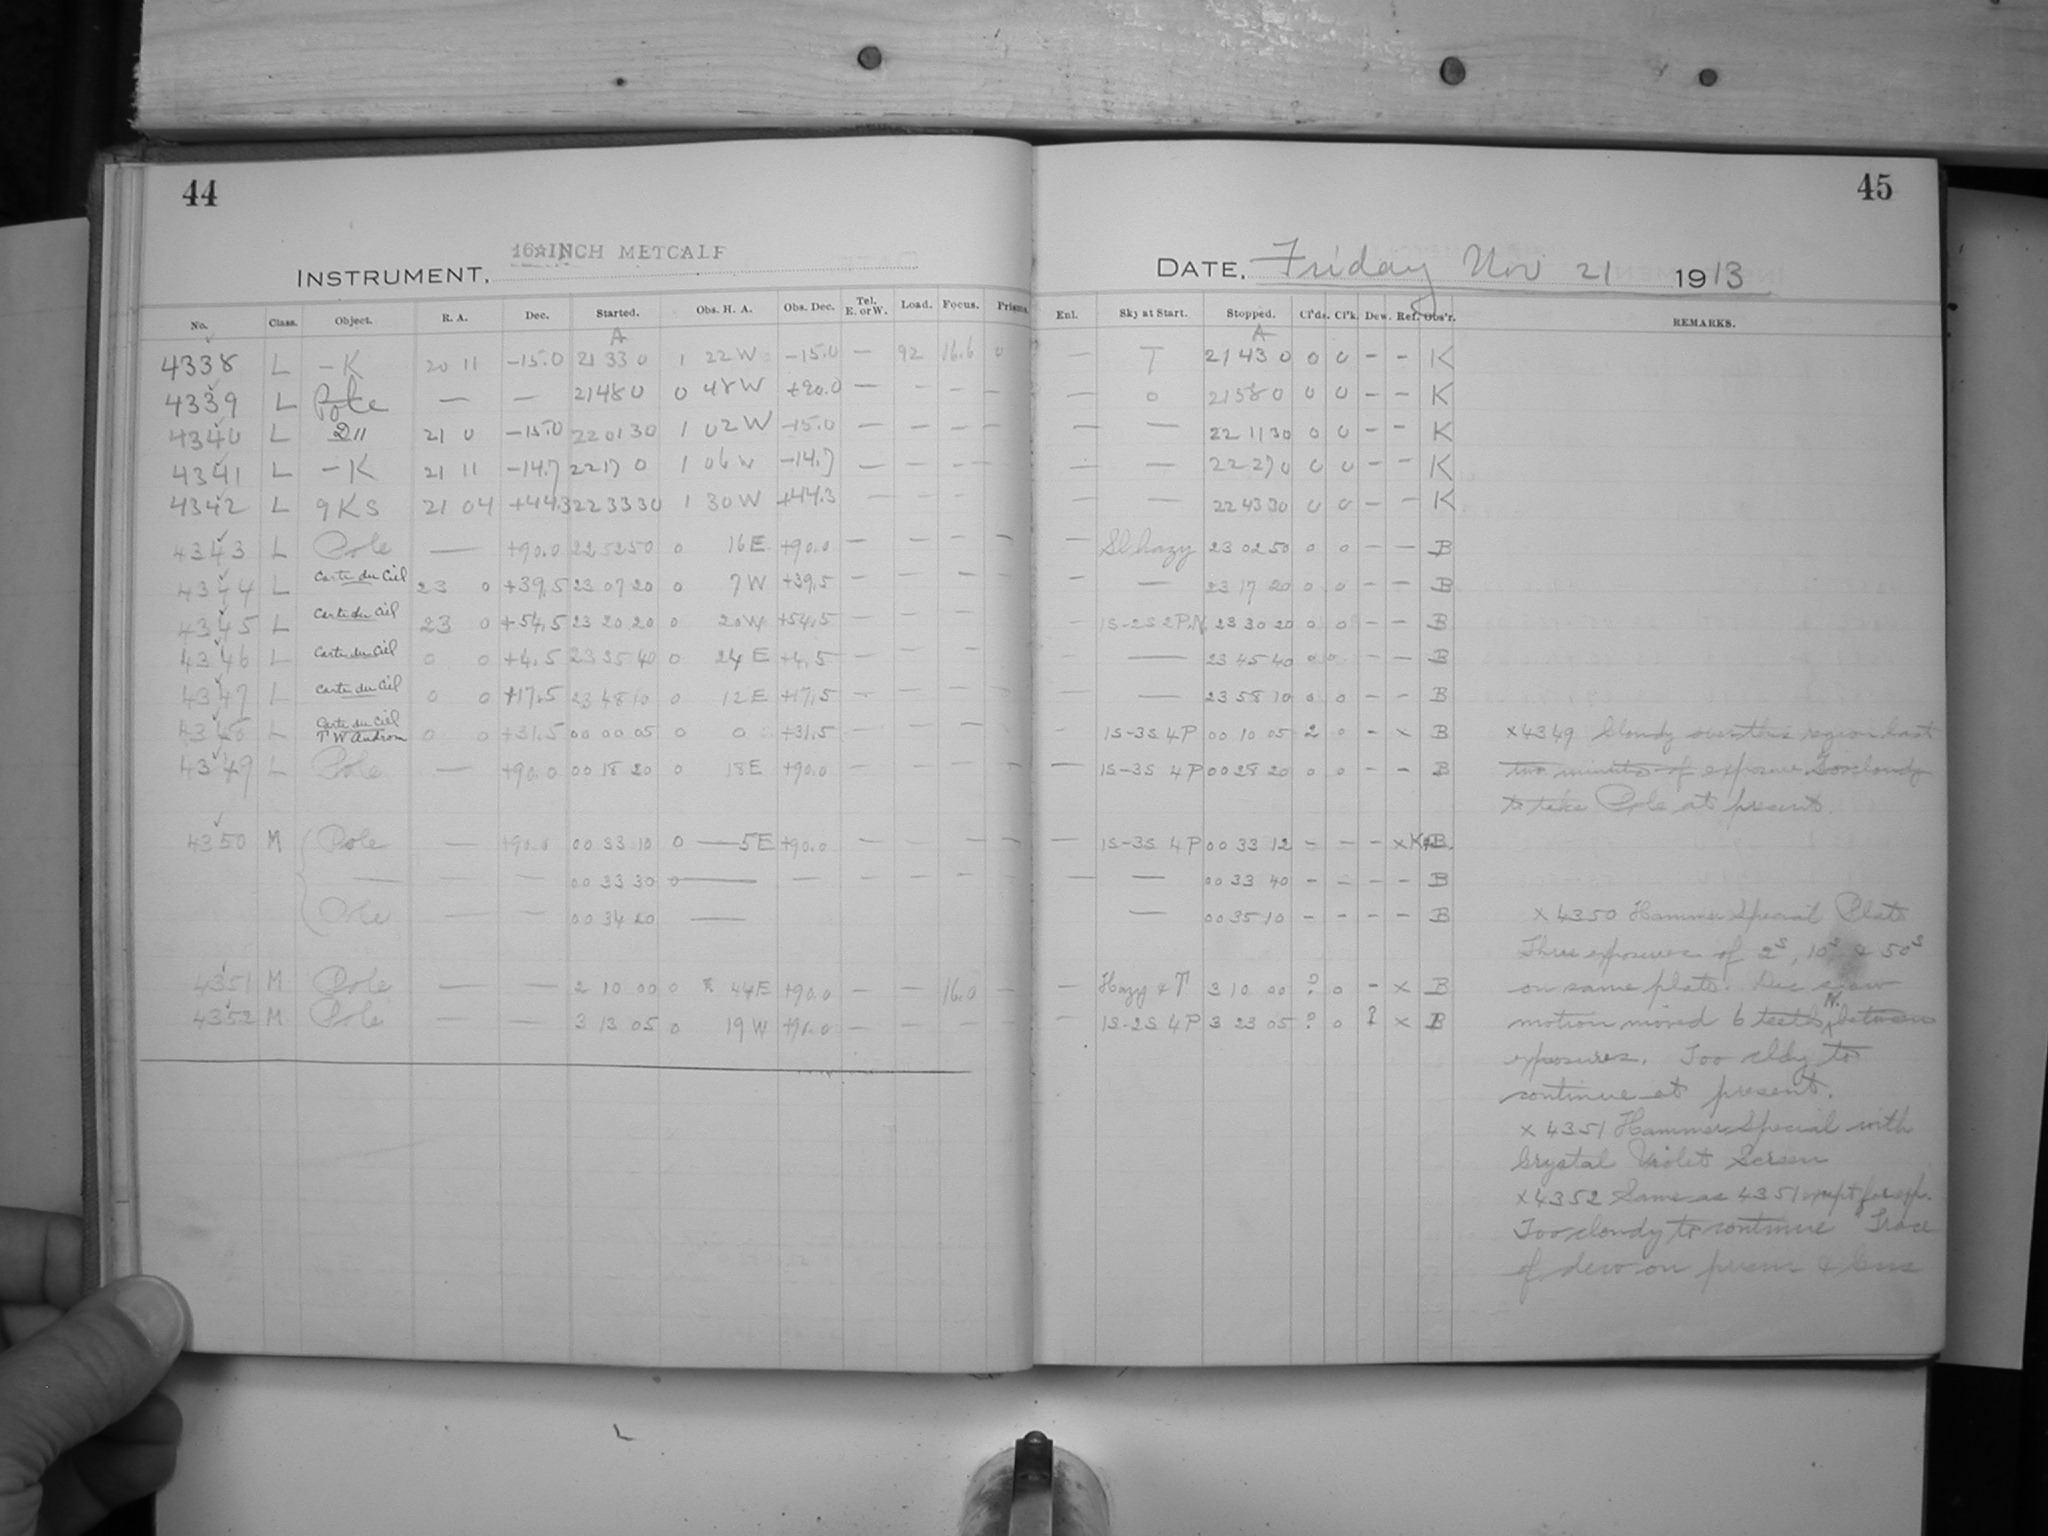 44
45
16☆INCH METCALF
INSTRUMENT,
DATE, Friday Nov 21 1913
No. Class. Object. R. A. Dec. Started. Obs. H. A. Obs. Dec. Tel. E. or W. Load. Focus. Prisms. Enl. Sky at Start. Stopped. Cl'ds. Cl'k. Dew. Ref. Obs'r. REMARKS.
A A
4338 L – K 20 11 –15.0 21 33 0 1 22 W –15.0 — 92 16.6 0 — T 21 43 0 0 0 – – K
4339 L Pole — — 21 48 0 0 48 W +90.0 — – – – — 0 21 58 0 0 0 – – K
4340 L D11 21 0 –15.0 22 01 30 1 02 W –15.0 — – – – — — 22 11 30 0 0 – – K
4341 L – K 21 11 –14.7 22 17 0 1 06 W –14.7 — – – – — — 22 27 0 0 0 – – K
4342 L 9KS 21 04 +44.3 22 33 30 1 30 W +44.3 — – – — — 22 43 30 0 0 – – K
4343 L Pole — +90.0 22 52 50 0 16 E +90.0 — — – – — Sl hazy 23 02 50 0 0 – – B
4344 L Carte du Ciel 23 0 +39.5 23 07 20 0 7 W +39.5 — — – – — — 23 17 20 0 0 – – B
4345 L Carte du Ciel 23 0 +54.5 23 20 20 0 20 W +54.5 — – – – 1S–2S 2P.N. 23 30 20 0 0 – – B
4346 L Carte du Ciel 0 0 +4.5 23 35 40 0 24 E +4.5 — – – – — 23 45 40 0 0 – – B
4347 L Carte du Ciel 0 0 +17.5 23 48 10 0 12 E +17.5 — – – – — 23 58 10 0 0 – – B
4348 L Carte du Ciel T W Androm 0 0 +31.5 00 00 05 0 0 +31.5 — – – – — 1S–3S 4P 00 10 05 2 0 – x B
x4349 Cloudy over this region last
4349 L Pole — +90.0 00 18 20 0 18 E +90.0 — – – – — 1S–3S 4P 00 28 20 0 0 – – B
two minutes of exposure Too cloudy
to take Pole at present.
4350 M Pole — +90.0 00 33 10 0 — 5E +90.0 — – – – — 1S–3S 4P 00 33 12 – – – x K&B.
— — — 00 33 30 0 — — – – – – — — 00 33 40 – – – – B
Pole — — 00 34 20 — — 00 35 10 – – – – B
x 4350 Hammer Special Plate
Three exposures of 2s, 10s & 50s
4351 M Pole — — 2 10 00 0 44 E +90.0 — – 16.0 – — Hazy & T 3 10 00 ? 0 – x B
on same plate. Dec slow
4352 M Pole — — 3 13 05 0 19 W +90.0 — – – – — 1S–2S 4P 3 23 05 ? 0 ? x B
motion moved 6 teeth N. between
exposures. Too cldy to
continue at present.
x 4351 Hammer Special with
Crystal Violet Screen
x4352 Same as 4351 except for exp.
Too cloudy to continue Trace
of dew on prism & lens